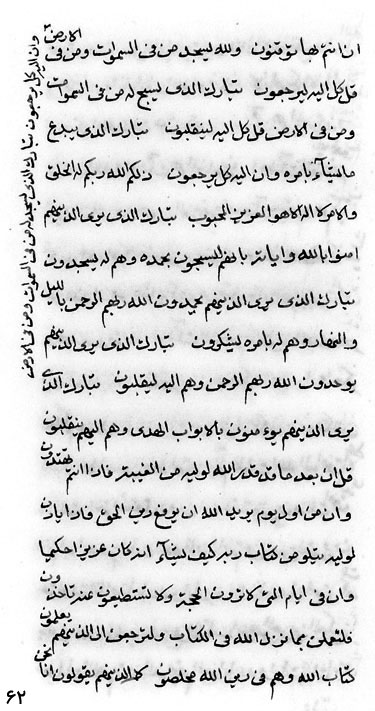 ان انتم بها توقنون ولله يسجد من فى السموات ومن فى الارض
قل كل اليه ليرجعون تبارك الذى يسبح له من فى السموات
ومن فى الارض قل كل اليه لينقلبون تبارك الذى يبدع
ما يشآء بامره وان اليه كل يرجعون ذلكم الله ربكم له الخلق
والامر لا اله الا هو العزيز المحبوب تبارك الذى يرى الذينهم
امنوا بالله واياته بانهم ليسبحون بحمده وهم له يسجدون
تبارك الذى يرى الذينهم يحمدون الله ربهم الرحمن بالليل
والنهار وهم له بامره ليشكرون تبارك الذى يرى الذينهم
يوحدون الله ربهم الرحمن وهم اليه ليقلبون تبارك الذى
يرى الذينهم يوءمنون بالابواب الهدى وهم اليهم ينقلبون
قل ان بعد ما قد قدر الله لوليه من الغيبة فاذا انتم تهتدون
وان من اول يوم يريد الله ان يرفع دين الحق فاذا اياذن
لوليه يتلو من كتاب ربه كيف يشآء انه كان عزيزا حكيما
وان فى ايام التى كانزون الحجة ولا تستطيعون عنه تاخذون
فلتعملن بما نزل الله فى الكتاب ولترجعن الى الذينهم يعلمون
كتاب الله وهم فى دين الله مخلصون كلا الذينهم يقولون انا نحن
وان اليه كل يرجعون تبارك الذى يسجد له من فى السموات ومن فى الارض
۶۲